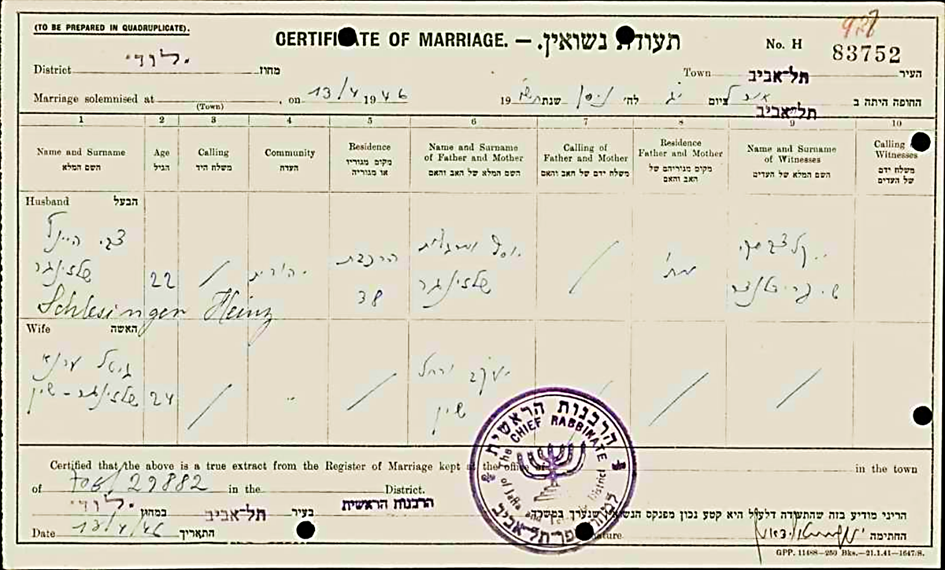 (TO BE PREPARED IN QUADRUPLICATE).
CERTIFICATE OF MARRIAGE. — תעודת נשואין.
927
No. H 83752
District לודי מחוז
Town תל־אביב העיר
Marriage solemnised at (Town), on 13/4 1946 19 שנת ניסן לח' יג ציום החופה היתה ב תל־אביב
1 2 3 4 5 6 7 8 9 10
Name and Surname השם המלא
Age הגיל
Calling משלח היד
Community העדה
Residence מקום מגוריו או מגוריה
Name and Surname of Father and Mother השם המלא של האב והאם
Calling of Father and Mother משלח ידם של האב והאם
Residence Father and Mother מקום מגוריהם של האב והאם
Name and Surname of Witnesses השם המלא של העדים
Calling Witnesses משלח ידם של העדים
Husband הבעל
צבי היינץ
שלזינגר 22 / יהודית הרכבת 38
שלזינגר / מת'
Schlesinger Heinz
Wife האשה
שלזינגר - שין 24 / /
יעקב ורחל
שין / /
Certified that the above is a true extract from the Register of Marriage kept at the office of in the town
of 706/29882 in the District.
הריני מודיע בזה שהתעודה דלעיל היא קטע נכון מפנקס הנשואין שנערך בקשרה
הרבנות הראשית בעיר תל־אביב במחוז לודי
Date 13/4/46 התאריך Signature החתימה
הרבנות הראשית
The CHIEF RABBINATE
of Jaffa and District
ליפו תל־אביב
GPP. 11488—250 Bks.—21.1.41—1647/8.